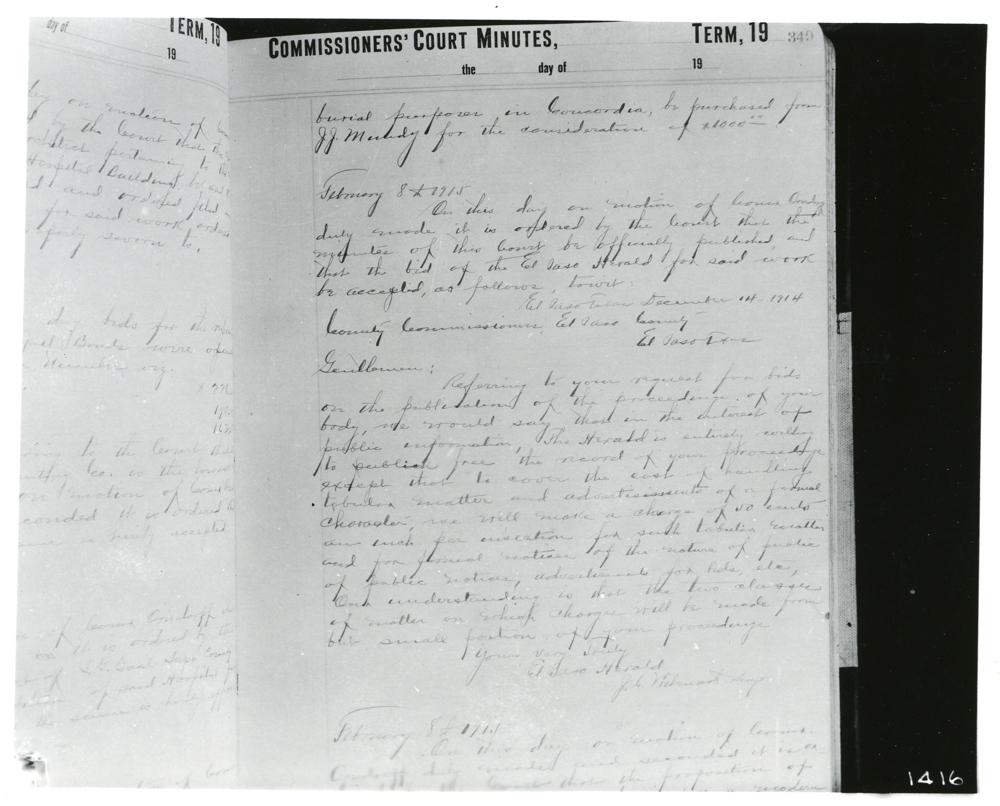 day of
TERM, 19
19
COMMISSIONERS' COURT MINUTES,
TERM, 19
349
the day of 19
by on motion of
d by the Court that the
pertaining to the
Hospital Building, be
d and ordered filed
for said work
sworn to,
bids for the
Bonds were
to the Court that
on motion of
conded it is ordered
accepted
of Comrs Orndorff
it is ordered
of said Hospital
burial purposes in Concordia, be purchased from
J.J. Mundy for the consideration of $1000.00
February 8th 1915
On this day on motion of Comrs
duly made it is ordered by the Court that the
minutes of this Court be officially published, and
that the bid of the El Paso Herald for said work
be accepted, as follows, towit:
El Paso Texas December 14 1914
County Commissioners, El Paso County
El Paso Texas
Gentlemen:
Referring to your request for bids
on the publication of the proceedings of your
body, we would say that in the interest of
public information, The Herald is entirely willing
to publish free the record of your proceedings
except that to cover the cost of handling
tabular matter and advertisements of a formal
Character, we will make a charge of 50 cents
an inch per insertion for such tabular matter
and for formal notices of the nature of public
of public notices, advertisements for bids, etc,
Our understanding is that the two classes
of matter on which charges will be made form
but small portion of your proceedings
Yours very truly
El Paso Herald
February 8th 1915
On this day on motion of Comrs.
Orndorff duly made and seconded it is
the Court that the proposition of
a modern
1416